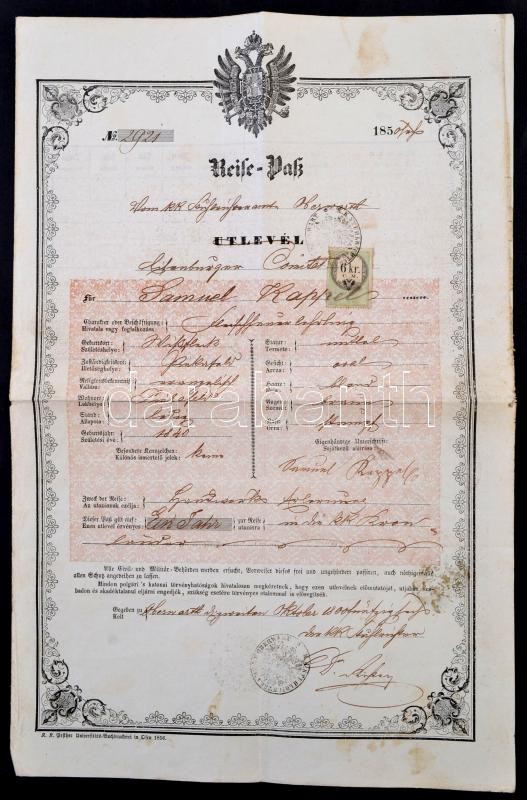 № 2921
185
Reise-Paß
Vom kk Oberwarth
UTLEVÉL
6 kr.
Ödenburger Comitat
Für Samuel Kappel részére.
Charakter oder Beschäftigung:
Hivatala vagy foglalkozása:
Geburtsort:
Születéshelye:
Zuständigkeitsort:
Illetőséghelye:
Religionsbekenntniß:
Vallása:
Wohnort:
Lakhelye:
Stand: ledig
Állapota:
Geburtsjahr: 1840
Születési éve:
Besondere Kennzeichen: keine
Különös ismertető jelek:
Statur: mittel
Termete:
Gesicht: oval
Arcza:
Haare: blond
Haja:
Augen: braun
Szemei:
Nase: stumpf
Orra:
Eigenhändige Unterschrift:
Sajátkezű aláirása:
Samuel Kappel
Zweck der Reise:
Az utazásnak czélja:
Dieser Paß gilt auf: Ein Jahr zur Reise: in die kk Kron
Ezen utlevél érvényes: utazásra
länder
Alle Civil- und Militär-Behörden werden ersucht, Vorweiser dieses frei und ungehindert passiren, auch nöthigenfalls
allen Schutz angedeihen zu lassen.
Minden polgári 's katonai törvényhatóságok hivatalosan megkéretnek, hogy ezen utlevélnek előmutatóját, utjában sza-
badon és akadálytalanul eljárni engedjék, szükség esetére törvényes oltalommal is elősegítsék.
Gegeben zu Oberwarth Oktober
Kelt
K. K. Pesther Universitäts-Buchdruckerei in Ofen 1856.
darabanth